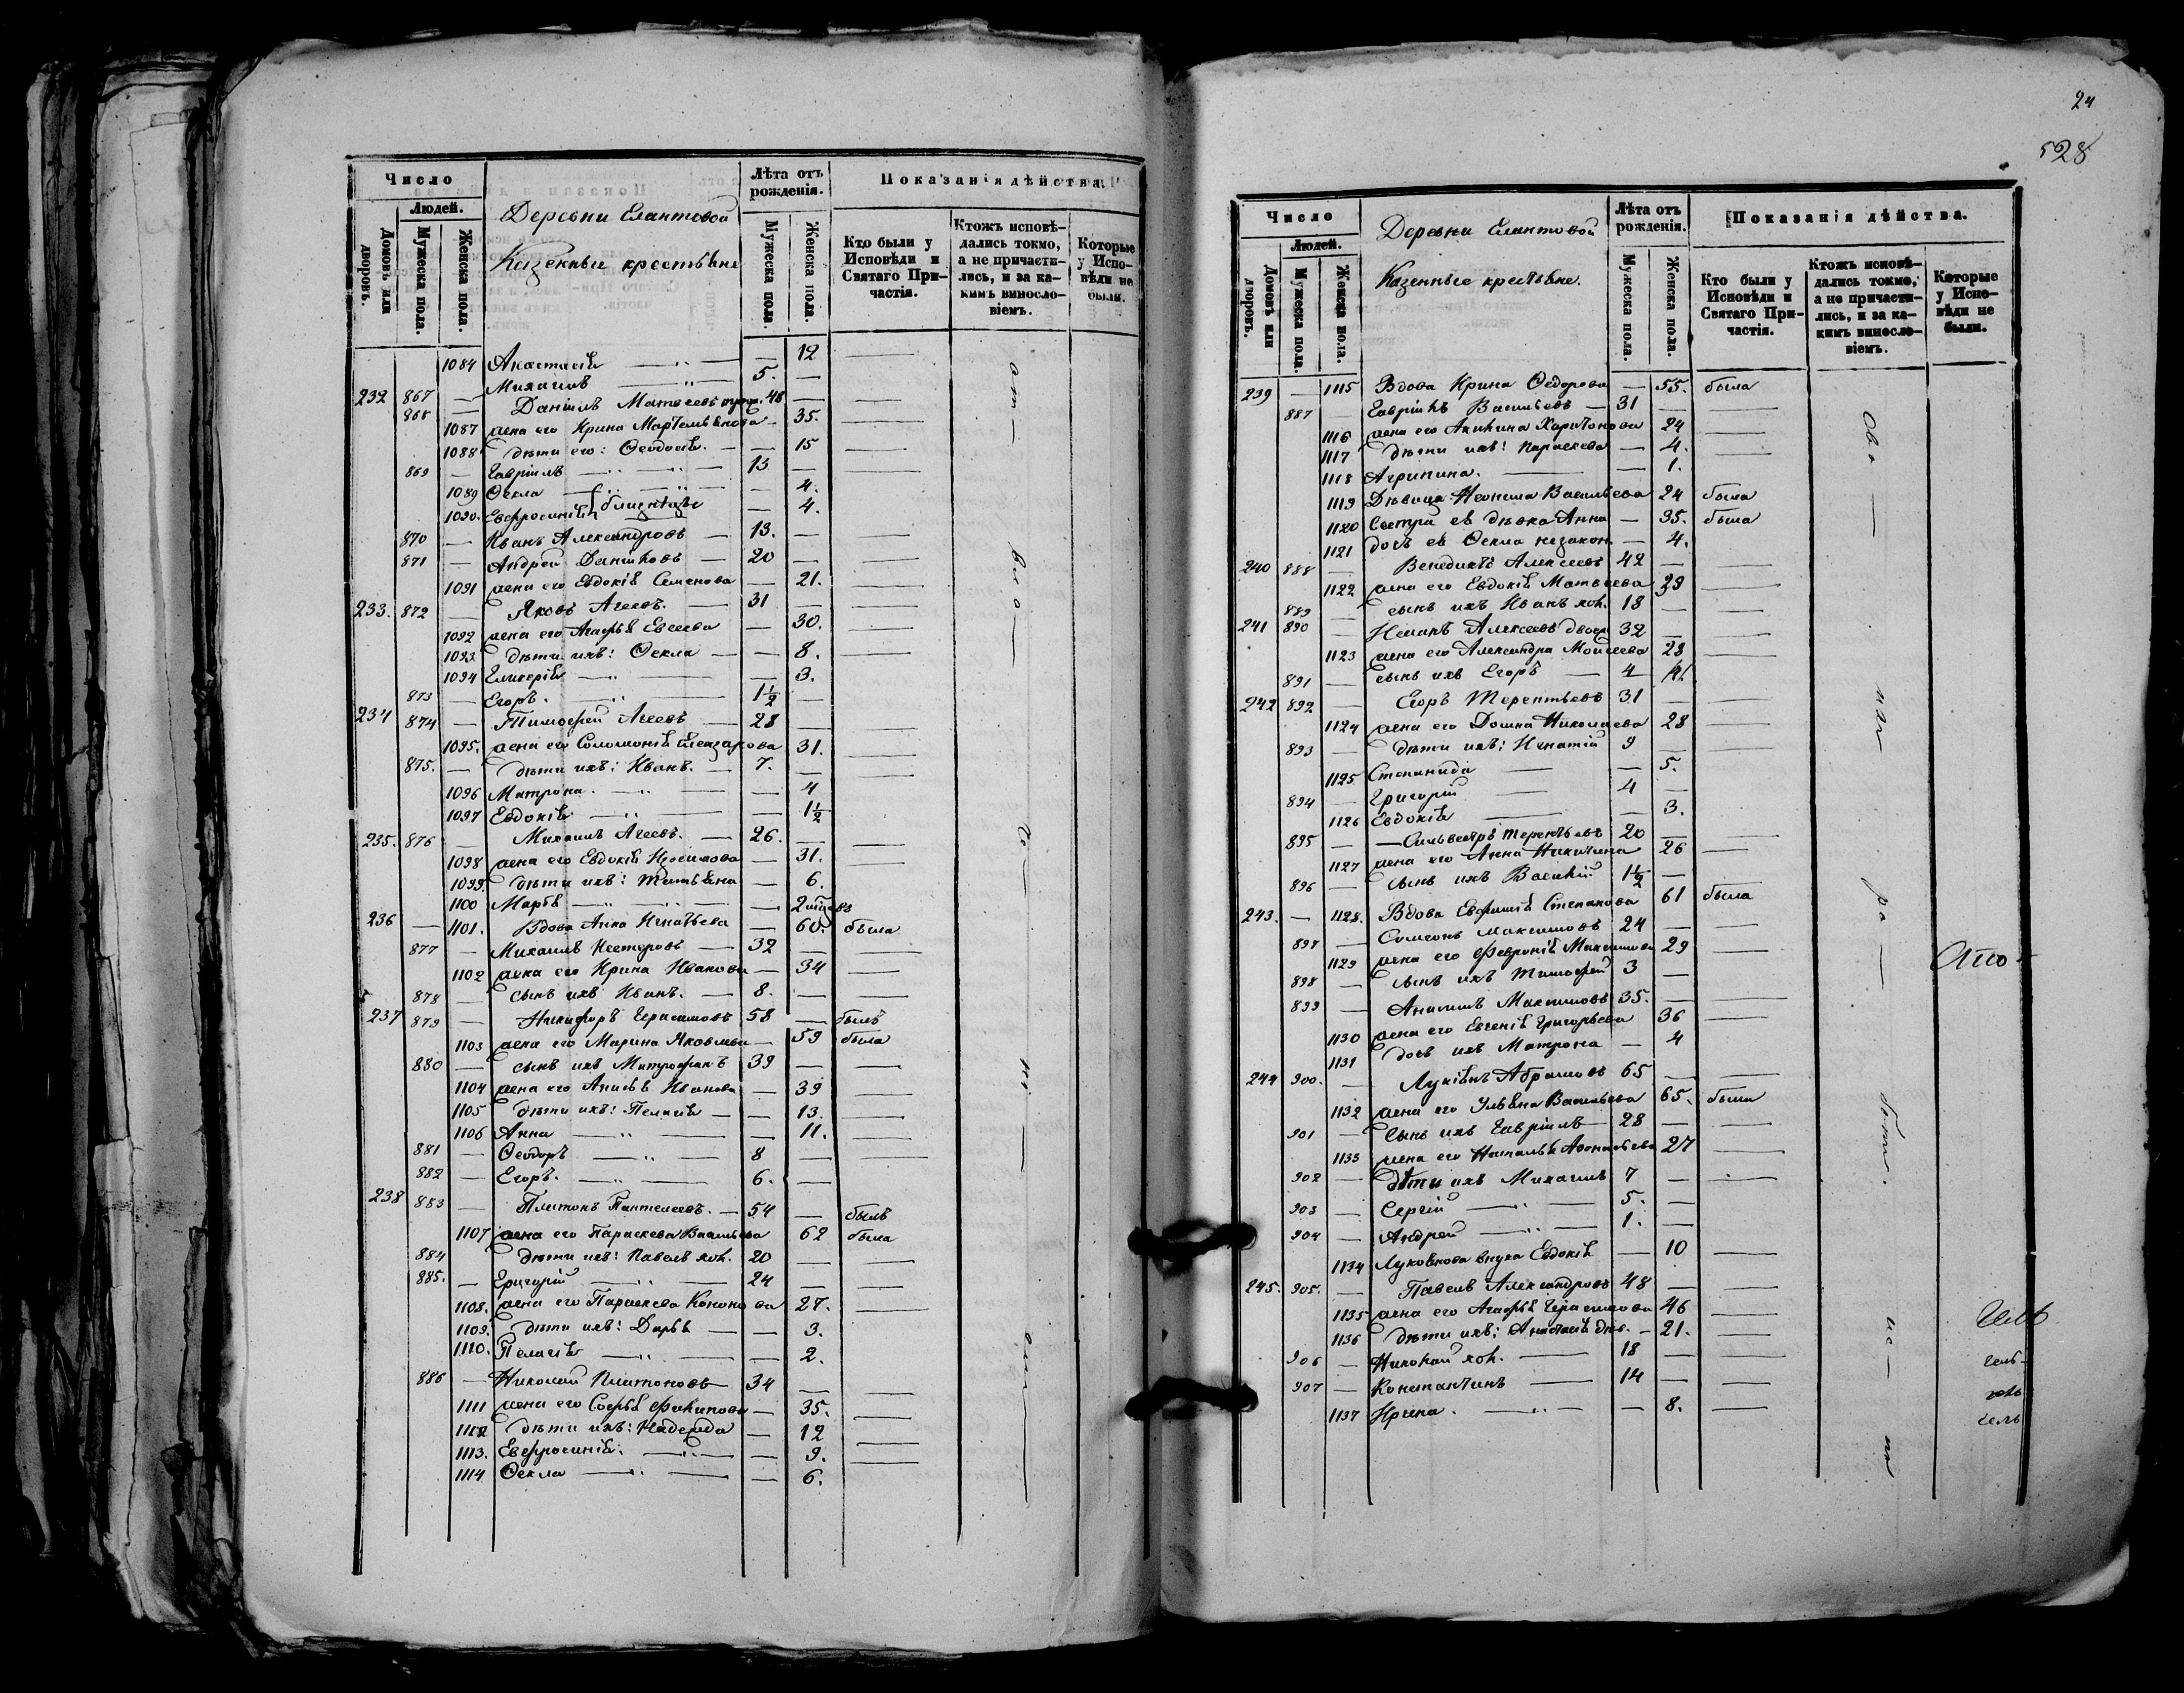 Число
Людей.
Домовъ или дворовъ.
Мужеска пола.
Женска пола.
Деревни Елантовой
Казенные крестьяне
Лѣта отъ рожденія.
Мужеска пола.
Женска пола.
Показанія дѣйства.
Кто были у Исповѣди и Святаго Причастія.
Ктожъ исповѣдались токмо, а не причастились, и за какимъ винословіемъ.
Которые у Исповѣди не были.
1084 Анастасія — 12
Михаилъ 5. —
232 867 — Даніилъ Матвеевъ 48 —
868 —
1087 жена его Ирина — 35.
1088 дѣти его: Ѳеодосія — 15
869 — Гавріилъ 13 —
1089 Ѳекла — 4.
1090. Евфросинія близнецы — 4.
870 — Иванъ Александровъ — 13. —
871 — Андрей Даниловъ — 20 —
1091 жена его Евдокія Семенова — 21.
233. 872 — Яковъ Агеевъ. — 31 —
1092 жена его Агафья Евсеева — 30.
1093 дѣти ихъ: Ѳекла — 8.
1094 Гликерія — 3.
873 — Егоръ. 1½ —
234 874 — Тимофей Агеевъ — 28 —
1095. жена его Соломонія Елеазарова 31.
875. — дѣти ихъ: Иванъ. — 7. —
1096 Матрона. — 4
1097 Евдокія — 1½
235. 876 — Михаилъ Агеевъ. — 26. —
1098 жена его Евдокія Изосимова — 31.
1099. дѣти ихъ: Татьяна — 6.
1100 Марѳа — 2
236 — 1101. Вдова Анна Игнатьева — 60. была
877 — Михаилъ Нестеровъ — 32 —
1102 жена его Ирина Иванова — 34
878 — сынъ ихъ Иванъ. — 8. —
237 879 — Никифоръ Герасимовъ 58 — былъ
1103 жена его Марина Яковлева — 59 была
880 — сынъ ихъ Митрофанъ 39 —
1104 жена его Анисья Иванова — 39
1105 дѣти ихъ: Пелагія — 13.
1106 Анна — 11.
881 — Ѳеодоръ 8 —
882 — Егоръ. 6. —
238 883 — Платонъ Пантелеевъ. — 54 — былъ
1107 жена его Параскева Васильева 62 была
884 дѣти ихъ: Павелъ хол. 20 —
885. — Григорій 24 —
1108. жена его Параскева Кононова 27.
1109. дѣти ихъ: Дарья — 3.
1110. Пелагія — 2.
886 — Николай Платоновъ 34 —
1111 жена его Софья Филипова — 35.
1112 дѣти ихъ: Надежда — 12
1113. Евфросинія. — 9.
1114 Ѳекла — 6.
24
528
Число
Людей.
Домовъ или дворовъ.
Мужеска пола.
Женска пола.
Деревни Елантовой
Казенные крестьяне.
Лѣта отъ рожденія.
Мужеска пола.
Женска пола.
Показанія дѣйства.
Кто были у Исповѣди и Святаго Причастія.
Ктожъ исповѣдались токмо, а не причастились, и за какимъ винословіемъ.
Которые у Исповѣди не были.
239 — 1115 Вдова Ирина Ѳедорова — 55. была
887 — Гавріилъ Васильевъ — 31 —
1116 жена его Акилина Харитонова 24
1117 дѣти ихъ: Параскева — 4.
1118 Агрипина. — 1.
1119 Дѣвица Неонила Васильева 24 была
1120 Сестра ея дѣвка Анна — 35. была
1121 дочь ея Ѳекла незакон. — 4.
240 888 — Венедиктъ Алексеевъ 42 —
1122 жена его Евдокія Матвеева 39
889 — сынъ ихъ Иванъ хол. 18 —
241 890 — Алексеевъ 32 —
1123 жена его Александра Моисеева 28
891 — сынъ ихъ Егоръ — 4
242 892 — Егоръ Терентьевъ 31 —
1124 жена его Домна Николаева 28
893 — дѣти ихъ: Игнатій 9 —
1125 Степанида — 5.
894 — Григорій 4 —
1126 Евдокія — 3.
895 — Сильвестръ Терентьевъ 20 —
1127 жена его Анна Никитина 26
896 — сынъ ихъ Василій 1½ —
243. — 1128. Вдова Евфимія Степанова 61 была
897 — Симеонъ Максимовъ 24 —
1129 жена его Февронія Максимова 29
898 — сынъ ихъ Тимофей 3 —
899 — Анисимъ Максимовъ 35. —
1130 жена его Евгенія Григорьева 36
1131 дочь ихъ Матрона — 4
244 900. — Лукіянъ Абрамовъ 65 —
1132 жена его Ульяна Васильева 65. была
901 — Сынъ ихъ Гавріилъ — 28 —
1133 жена его Наталья Афонасьева 27
902 — дѣти ихъ Михаилъ 7 —
903 — Сергій 5. —
904 — Андрей 1. —
1134 Лукоянова внука Евдокія — 10
245. 905. — Павелъ Александровъ 48 —
1135 жена его Агафья Герасимова 46
1136 дѣти ихъ: Анастасія дѣв. — 21.
906 — Николай хол. 18 —
907 — Константинъ 14 —
1137 Ирина. — 8.